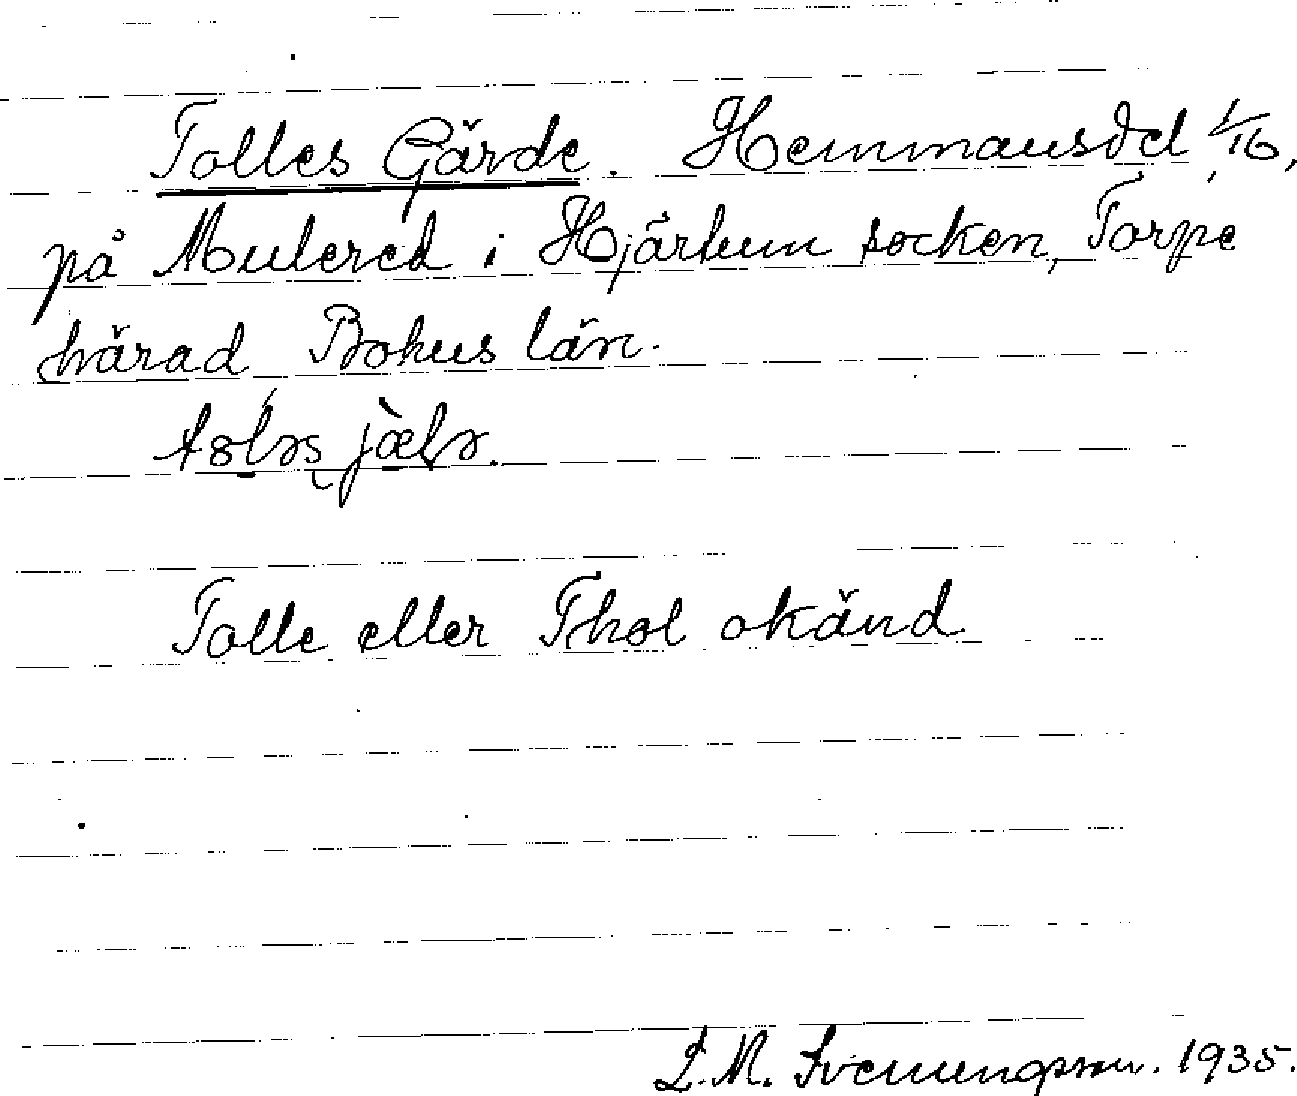 Tolles Gärde. Hemmansdel 1/16,
på Mulered i Hjärtum socken, Torpe
härad Bohus län.
Tolle eller Thol okänd.
L.M. Svenungsson. 1935.